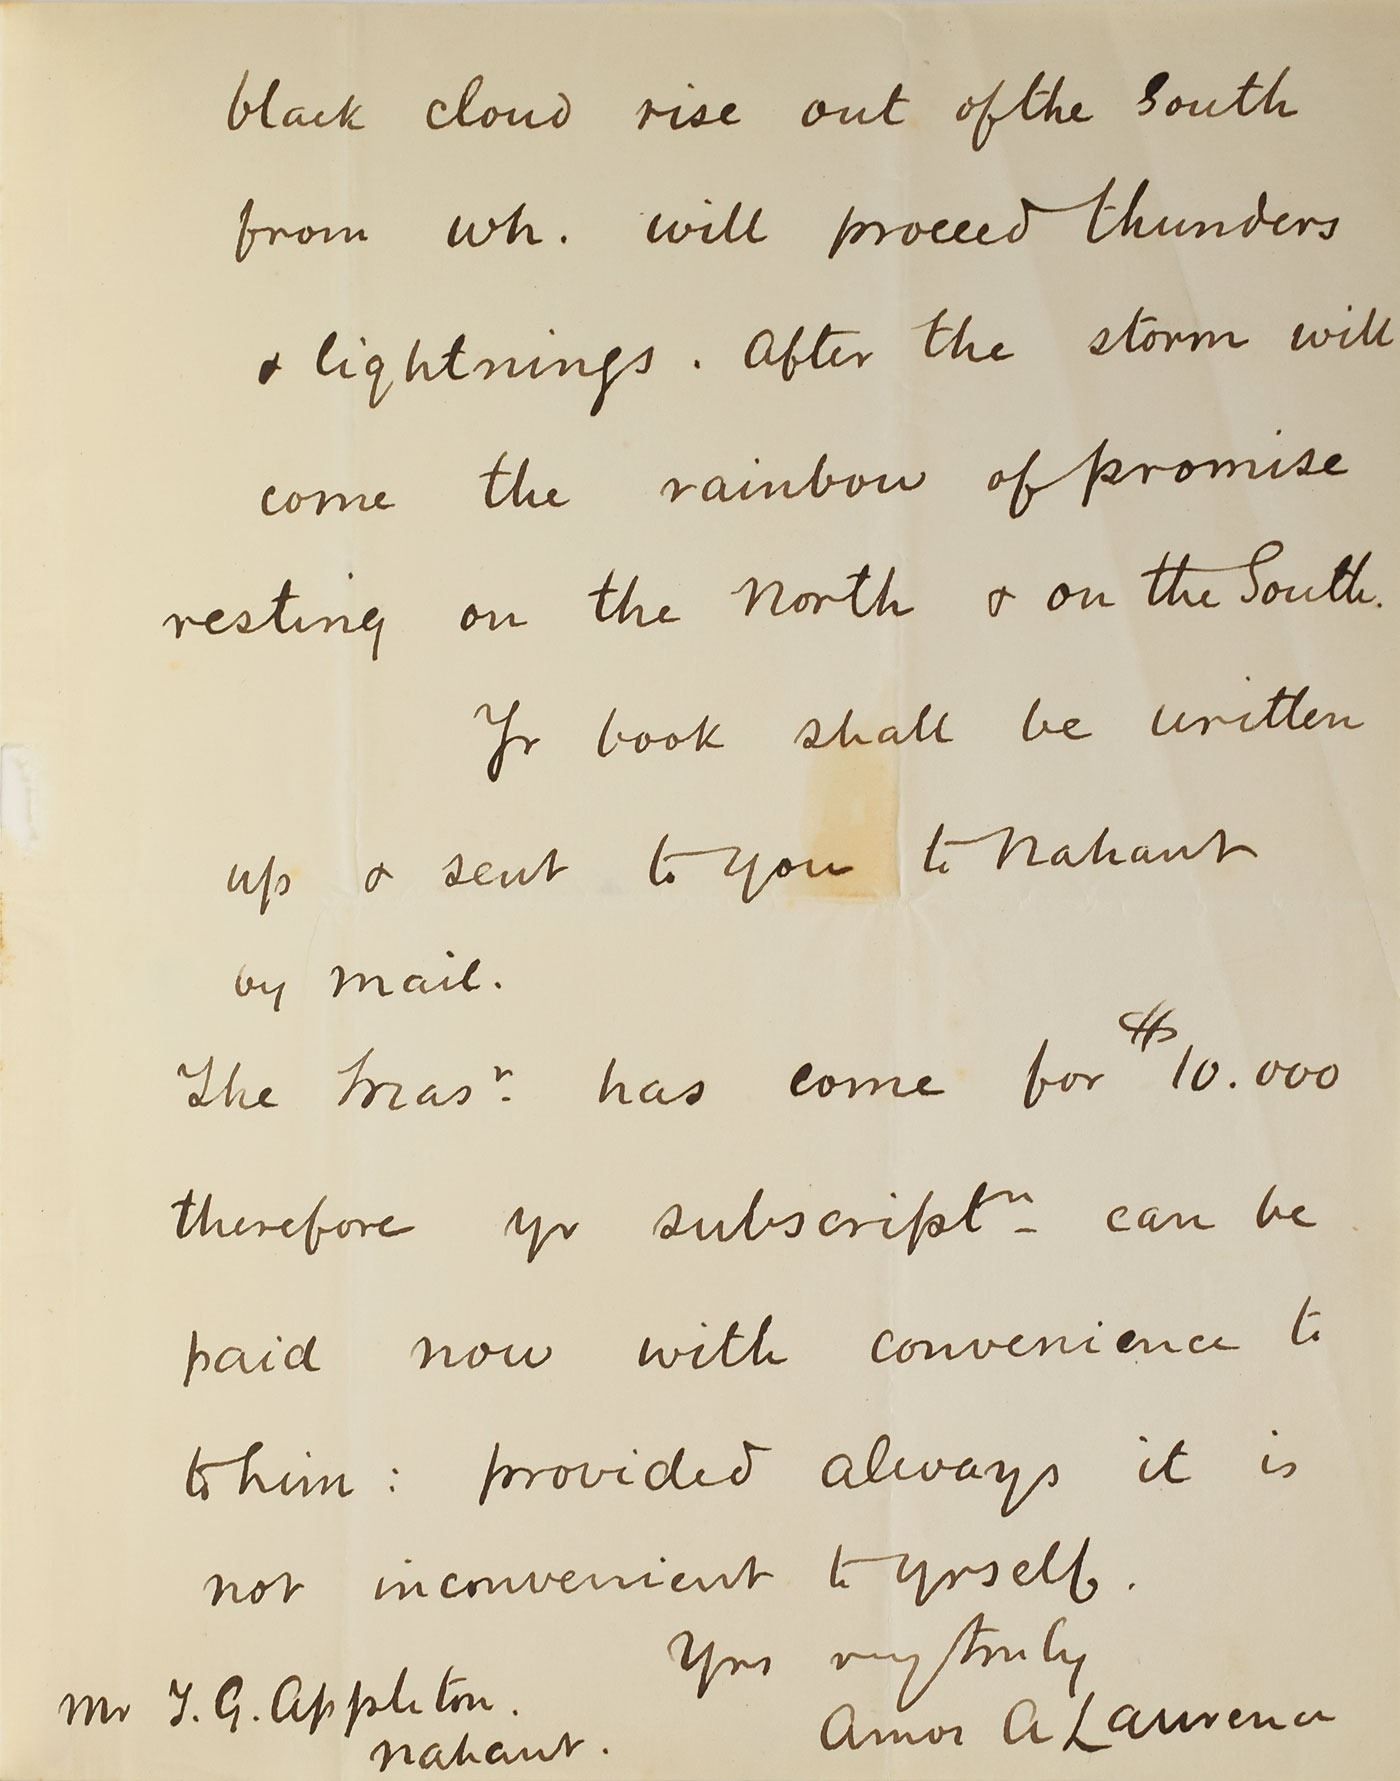 black cloud rise out of the South
from wh. will proceed thunders
& lightnings. After the storm will
come the rainbow of promise
resting on the North & on the South.
Yr book shall be written
up & sent to you to Nahant
by mail.
The Treasr. has come for $10.000
therefore yr subscriptn can be
paid now with convenience to
to him: provided always it is
not inconvenient to yrself.
Yrs very truly
Mr T. G. Appleton. Amos A Lawrence
Nahant.